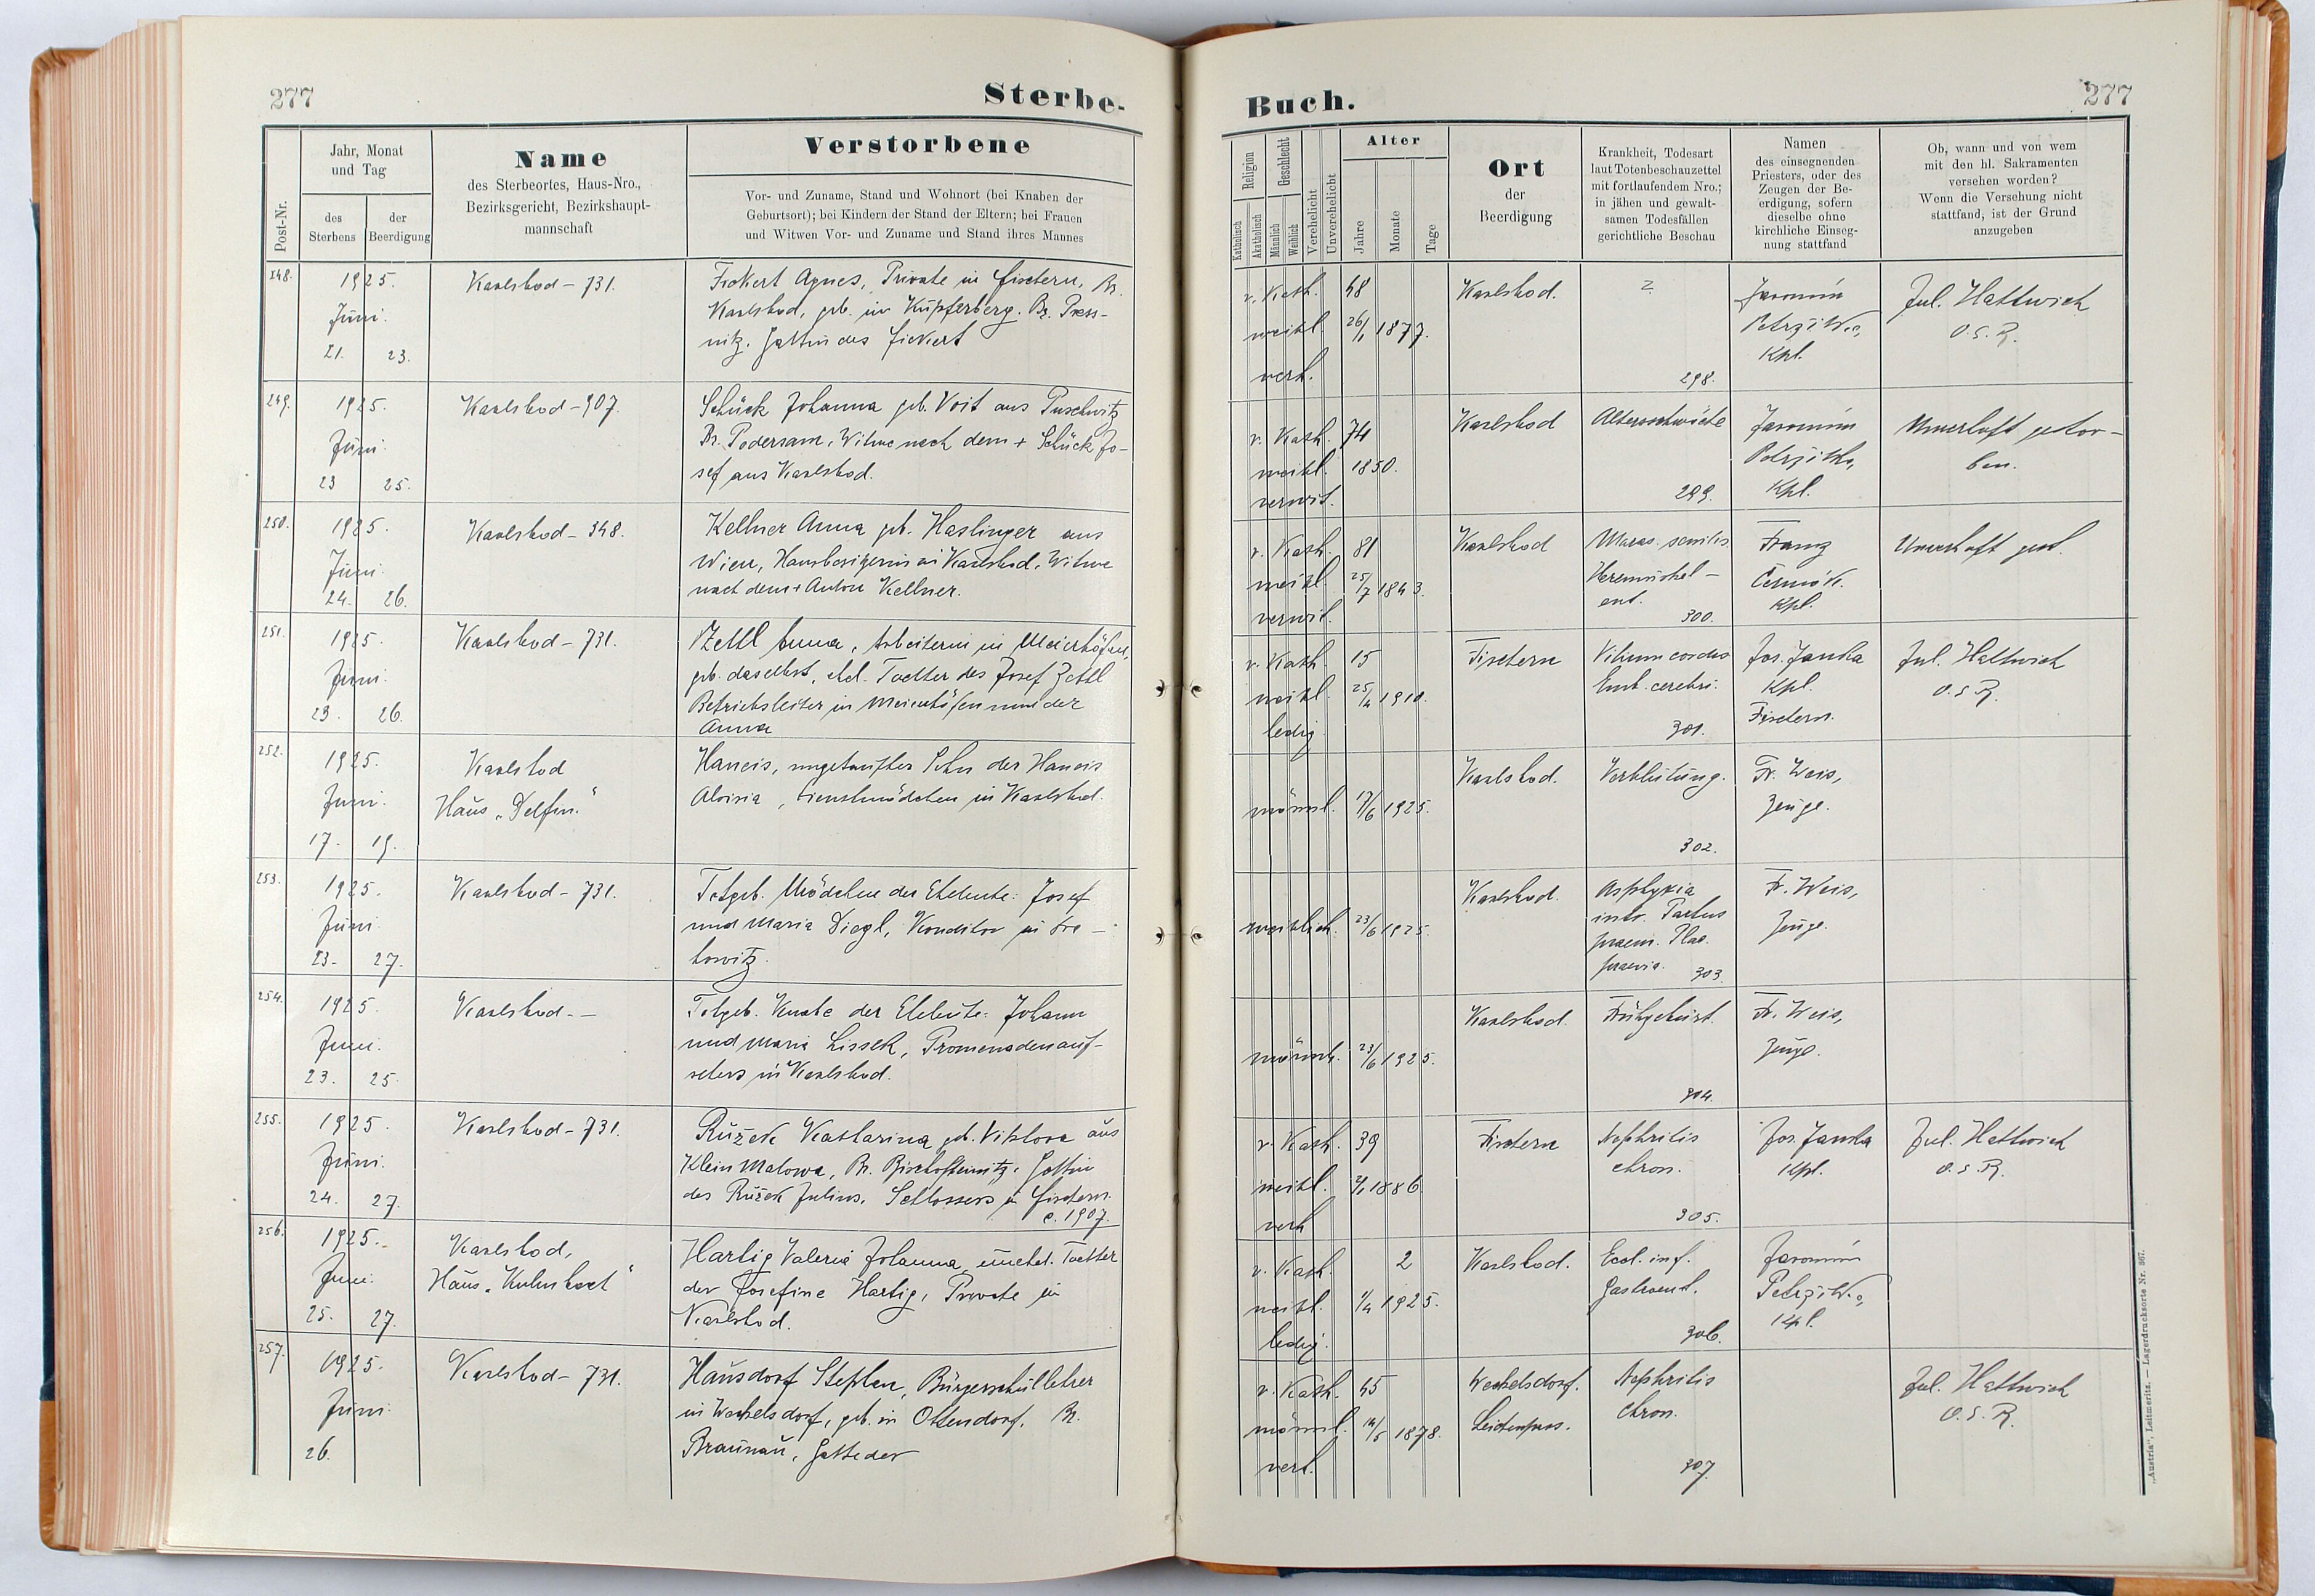 277
Sterbe-
Post-Nr.
Jahr, Monat
und Tag
des
Sterbens
der
Beerdigung
Name
des Sterbeortes, Haus-Nro.,
Bezirksgericht, Bezirkshaupt-
mannschaft
Verstorbene
Vor- und Zuname, Stand und Wohnort (bei Knaben der
Geburtsort); bei Kindern der Stand der Eltern; bei Frauen
und Witwen Vor- und Zuname und Stand ihres Mannes
248.
1925.
Juni.
21. 23.
Karlsbad - 731.
Fickert Agnes, Private in Fischern, Bz.
Karlsbad, geb. in Kupferberg. Bz. Press-
nitz. Gattin des Fickert
249.
1925.
Juni.
23 25.
Karlsbad - 907.
Schück Johanna geb. Voit aus Puschwitz
Bz. Podersam, Witwe nach dem + Schück Jo-
sef aus Karlsbad.
250.
1925.
Juni.
24. 26.
Karlsbad - 348.
Kellner Anna geb. Haslinger aus
Wien, Hausbesitzerin in Karlsbad, Witwe
nach dem + Anton Kellner.
251.
1925.
Juni.
23. 26.
Karlsbad - 731.
Zettl Anna, Arbeiterin in Meierhöfen,
geb. daselbst, ehel. Tochter des Josef Zettl
Betriebsleiter in Meierhöfen und der
Anna
252.
1925.
Juni.
17. 19.
Karlsbad
Haus „Delfin."
Hancis, ungetaufter Sohn der Hancis
Aloisia, Dienstmädchen in Karlsbad.
253.
1925.
Juni.
23. 27.
Karlsbad - 731.
Totgeb. Mädchen der Eheleute: Josef
und Maria Diegl, Konditor in Dra-
howitz.
254.
1925.
Juni.
23. 25.
Karlsbad. -
Totgeb. Knabe der Eheleute: Johann
und Maria Lissek, Promenadenauf-
sehers in Karlsbad.
255.
1925.
Juni.
24. 27.
Karlsbad - 731.
Růžek Katharina geb. aus
Klein Malowa, Bz. Bischofteinitz, Gattin
des Růžek Julius, Schlossers in Fischern.
c. 1907.
256.
1925.
Juni.
25. 27.
Karlsbad,
Haus „
Hartig Valeria Johanna, unehel. Tochter
der Josefine Hartig, Private in
Karlsbad.
257.
1925.
Juni.
26.
Karlsbad - 731.
Hausdorf Stephan, Bürgerschullehrer
in Wekelsdorf, geb. in Ottendorf, Bz.
Braunau, Gatte der
Buch.
277
Religion
Katholisch
Akatholisch
Geschlecht
Männlich
Weiblich
Verehelicht
Unverehelicht
Alter
Jahre
Monate
Tage
Ort
der
Beerdigung
Krankheit, Todesart
laut Totenbeschauzettel
mit fortlaufendem Nro.;
in jähen und gewalt-
samen Todesfällen
gerichtliche Beschau
Namen
des einsegnenden
Priesters, oder des
Zeugen der Be-
erdigung, sofern
dieselbe ohne
kirchliche Einseg-
nung stattfand
Ob, wann und von wem
mit den hl. Sakramenten
versehen worden?
Wenn die Versehung nicht
stattfand, ist der Grund
anzugeben
r. Kath.
weibl.
verh.
48
26/1 1877.
Karlsbad.
?
298.
Jaromír
Petržilka,
Kpl.
Jul. Hattwich
O.S.R.
r. Kath.
weibl.
verwit.
74
1850.
Karlsbad
Altersschwäche
299.
Jaromír
Petržilka,
Kpl.
Unverhofft gestor-
ben.
r. Kath.
weibl.
verwit.
81
25/7 1843.
Karlsbad
Maras. senilis.
Herzmuskel-
ent.
300.
Franz
Čermák.
Kpl.
Unverhofft gest.
r. Kath.
weibl.
ledig
15
25/4 1910.
Fischern
Vitium cordis
Emb. cerebri.
301.
Jos. Janka
Kpl.
Fischern.
Jul. Hattwich
O.S.R.
männl.
17/6 1925.
Karlsbad.
Verblutung.
302.
Fr. Weis,
Zeuge.
weiblich.
23/6 1925.
Karlsbad.
Asphyxia
intr. Partus
praem. Plac.
praevia.
303.
Fr. Weis,
Zeuge.
männl.
23/6 1925.
Karlsbad.
Frühgeburt.
304.
Fr. Weis,
Zeuge.
r. Kath.
weibl.
verh
39
1886.
Fischern
Nephritis
chron.
305.
Jos. Janka
Kpl.
Jul. Hattwich
O.S.R.
r. Kath.
weibl.
ledig.
2
1/4 1925.
Karlsbad.
Ecl. inf.
Gastroent.
306.
Jaromír
Petržilka,
Kpl.
r. Kath.
männl.
verh.
45
14/5 1878.
Wekelsdorf.
Leichenpass.
Nephritis
chron.
307.
Jul. Hattwich
O.S.R.
„Austria", Leitmeritz. — Lagerdrucksorte Nr. 867.